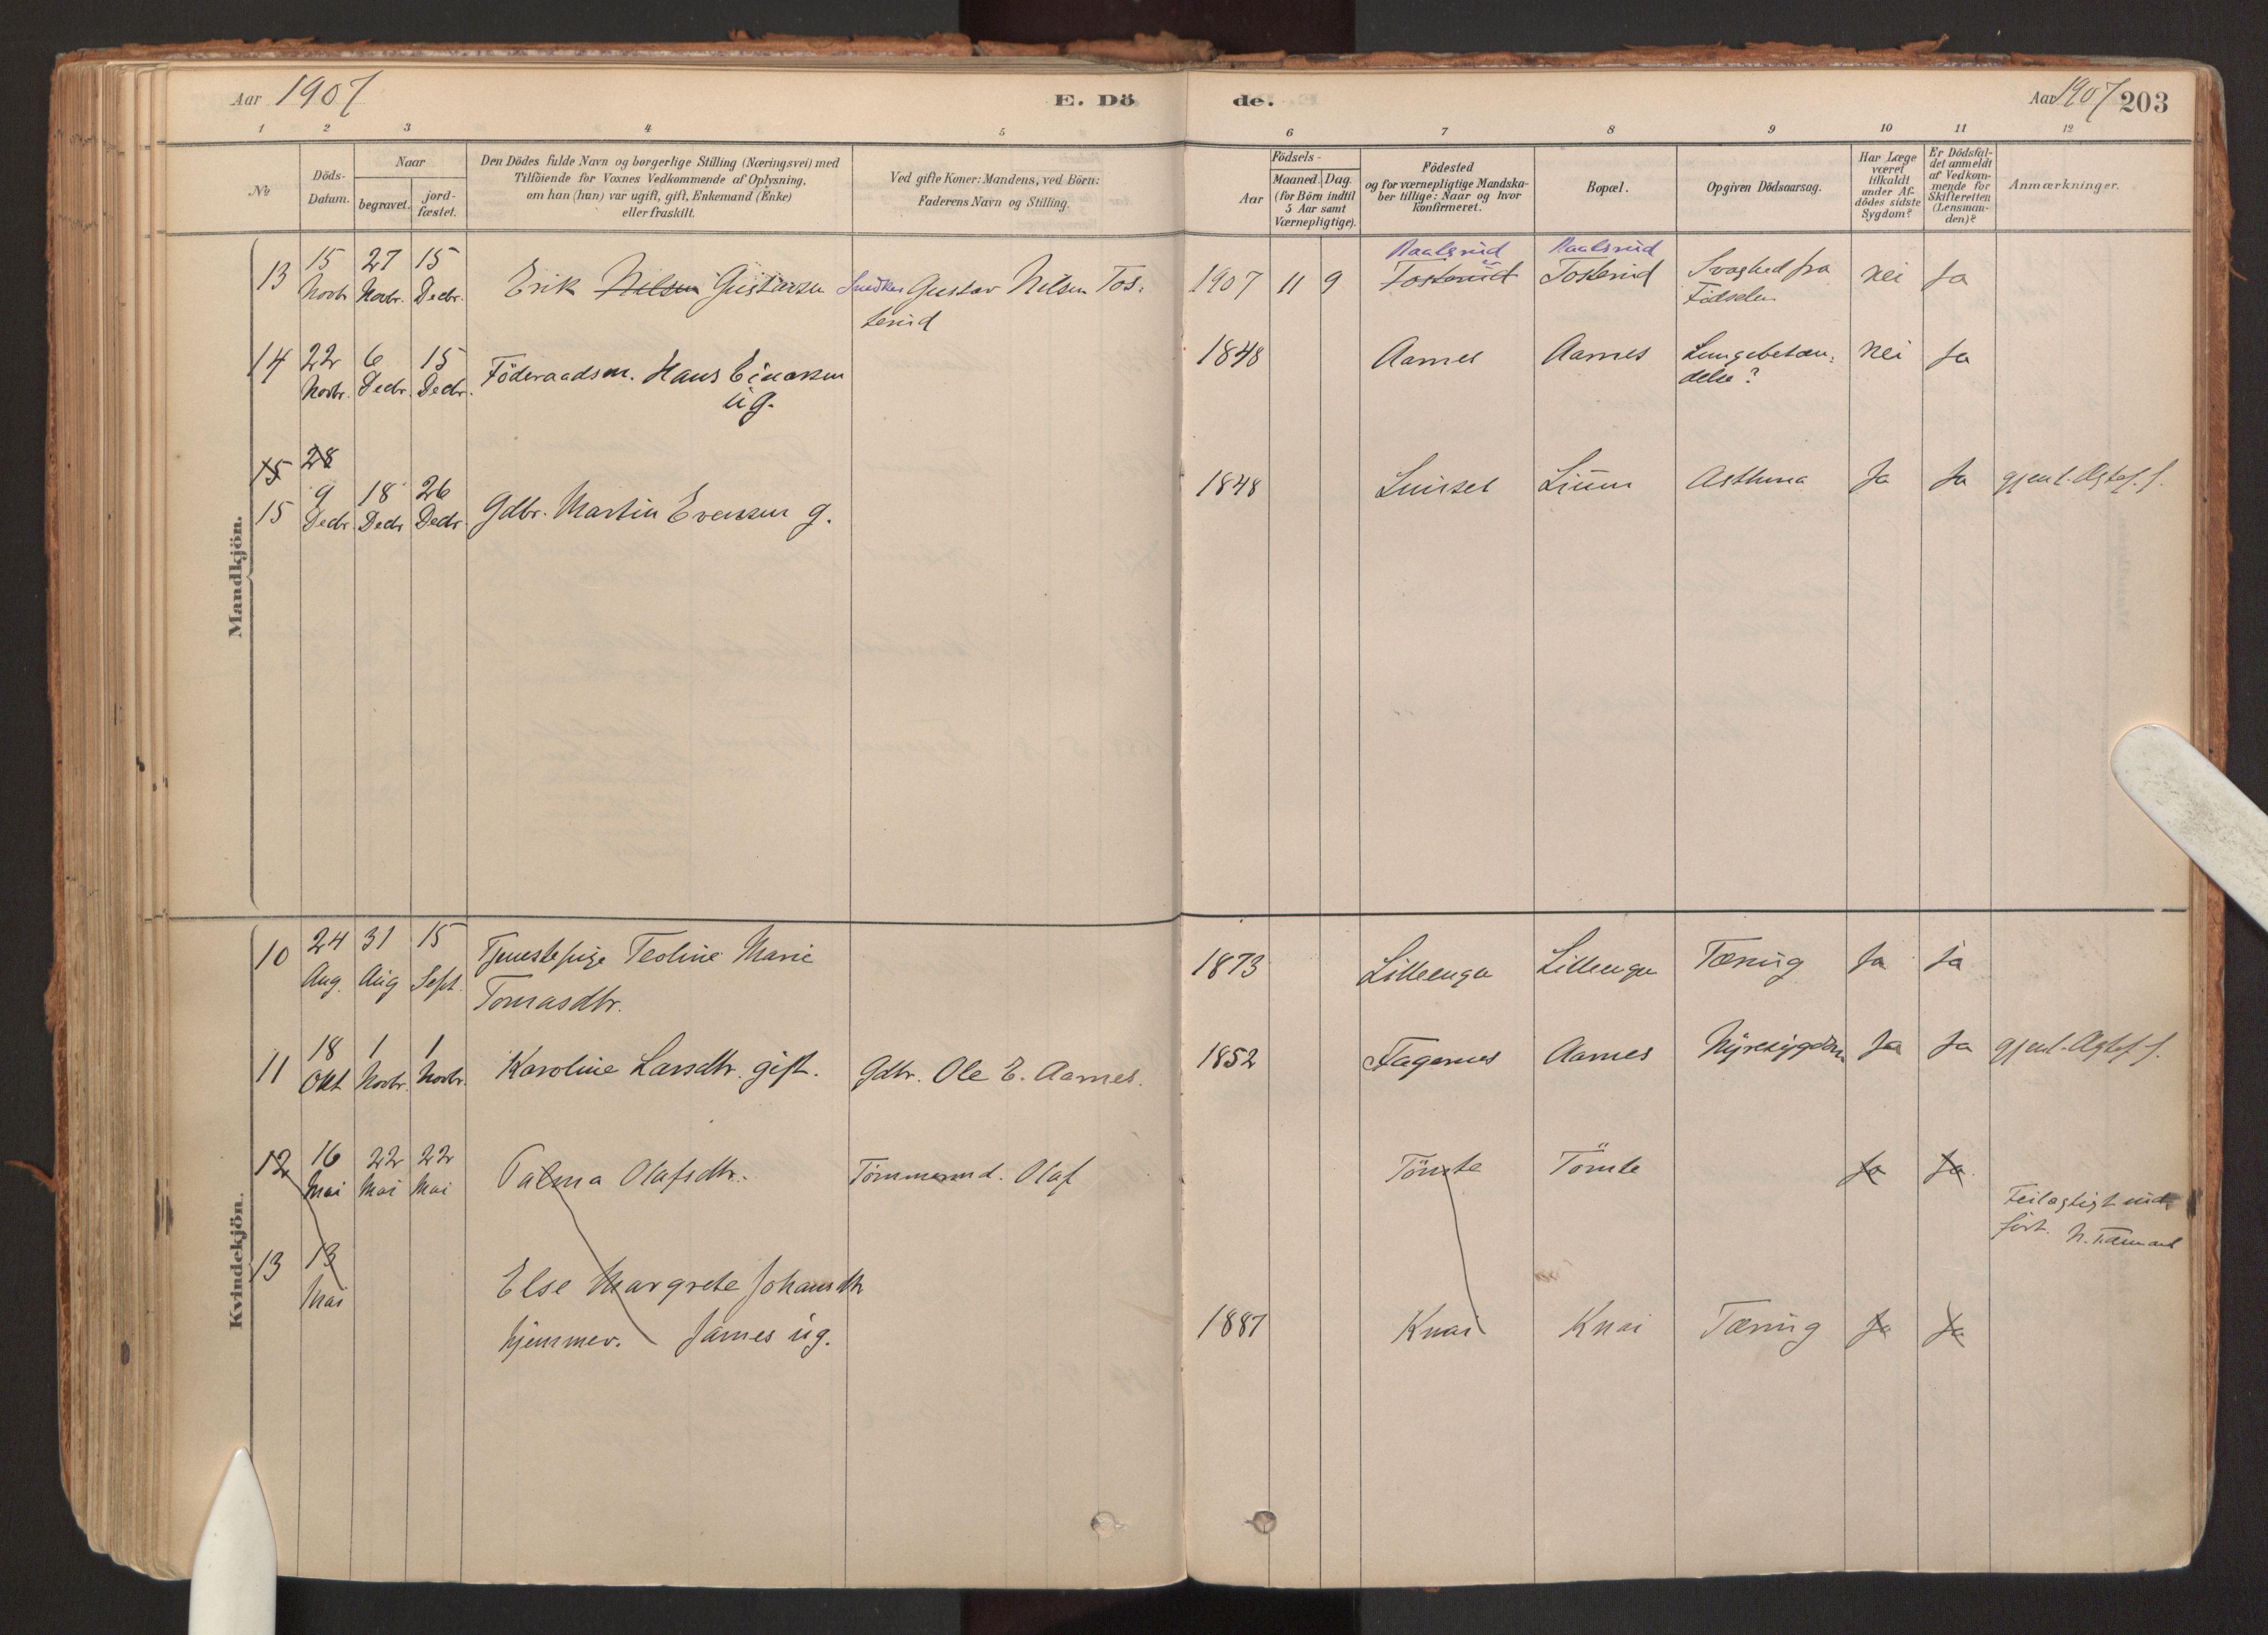 Aar 1907 E. Dö de. Aar 1907 203
1 2 3 4 5 6 7 8 9 10 11 12
No
Döds-
Datum.
Naar
begravet.
jord-
fæstet.
Den Dödes fulde Navn og borgerlige Stilling (Næringsvei) med
Tilföiende for Voxnes Vedkommende af Oplysning,
om han (hun) var ugift, gift, Enkemand (Enke)
eller fraskilt.
Ved gifte Koner: Mandens, ved Börn:
Faderens Navn og Stilling.
Födsels-
Aar
Maaned. Dag.
(for Börn indtil
5 Aar samt
Værnepligtige).
Födested
og for værnepligtige Mandska-
ber tillige: Naar og hvor
konfirmeret.
Bopæl.
Opgiven Dödsaarsag.
Har Læge
været
tilkaldt
under Af-
dödes sidste
Sygdom?
Er Dödsfal-
det anmeldt
af Vedkom-
mende for
Skifteretten
(Lensman-
den)?
Anmærkninger.
Mandkjön.
13 15 Novbr. 27 Novbr. 15 Decbr. Erik Nilsen Gustavsen Snedker Gustav Nilsen Tos-
terud
1907 11 9 Raalsrud Tosterud Raalsrud Tosterud Svaghed fra
Födselen nei Ja
14 22 Novbr. 6 Decbr. 15 Decbr. Föderaadsm. Hans Einarsen
ug.
1848 Aarnes Aarnes Lungebetæn-
delse? nei Ja
15 28
15 9 Decbr. 18 Decbr. 26 Decbr. Gdbr. Martin Evensen g.
1848 Asthma Ja Ja
Kvindekjön.
10 24 Aug. 31 Aug 15 Sept. Tjenestepige Teoline Marie
Tomasdtr.
1873 Lilleenga Lilleenga Tæring Ja Ja
11 18 Okt 1 Novbr. 1 Novbr. Karoline Larsdtr. gift. Gdbr. Ole E. Aarnes.
1852 Fagernes Aarnes Nyresygdom Ja Ja
12 16 Mai 22 Mai 22 Mai Palma Olafsdtr. Tømmermd. Olaf
Tömte Tömte Ja Ja
Feilagtigt ind-
ført.
13 13 Mai Else Margrete Johansdtr
hjemmev. Jarnes ug.
1887 Knai Knai Tæring Ja Ja